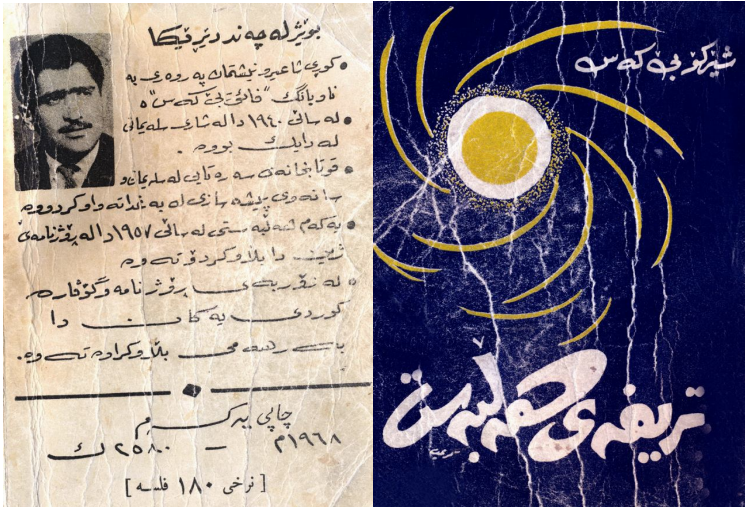 بوێژ لە چەند دێڕێکا
• کوڕی شاعیرو نیشتمان پەروەری بە
ناوبانگ "فائق بێکەس"ە
• لە ساڵی ١٩٤٠ دا لە شاری سلەیمانی
لە دایک بووە .
• قوتابخانەی سەرەتایی لە سلەیمانی و
سانەوی پیشەسازی لە بەغدا تەواوکردووە
• یەکەم هەڵبەستی لە ساڵی ١٩٥٧ دا لە ڕۆژنامەی
ژین دا بڵاوکردۆتەوە
• لە زۆربەی ڕۆژنامەو گۆڤارە
کوردی یەکان دا
بەرهەمی بڵاوکراوەتەوە .
چاپی یەکەم
١٩٦٨م – ٢٥٨٠ ک
[ نرخی ١٨٠ فلسە ]
شێرکۆ بێکەس
تریفەی هەڵبەست